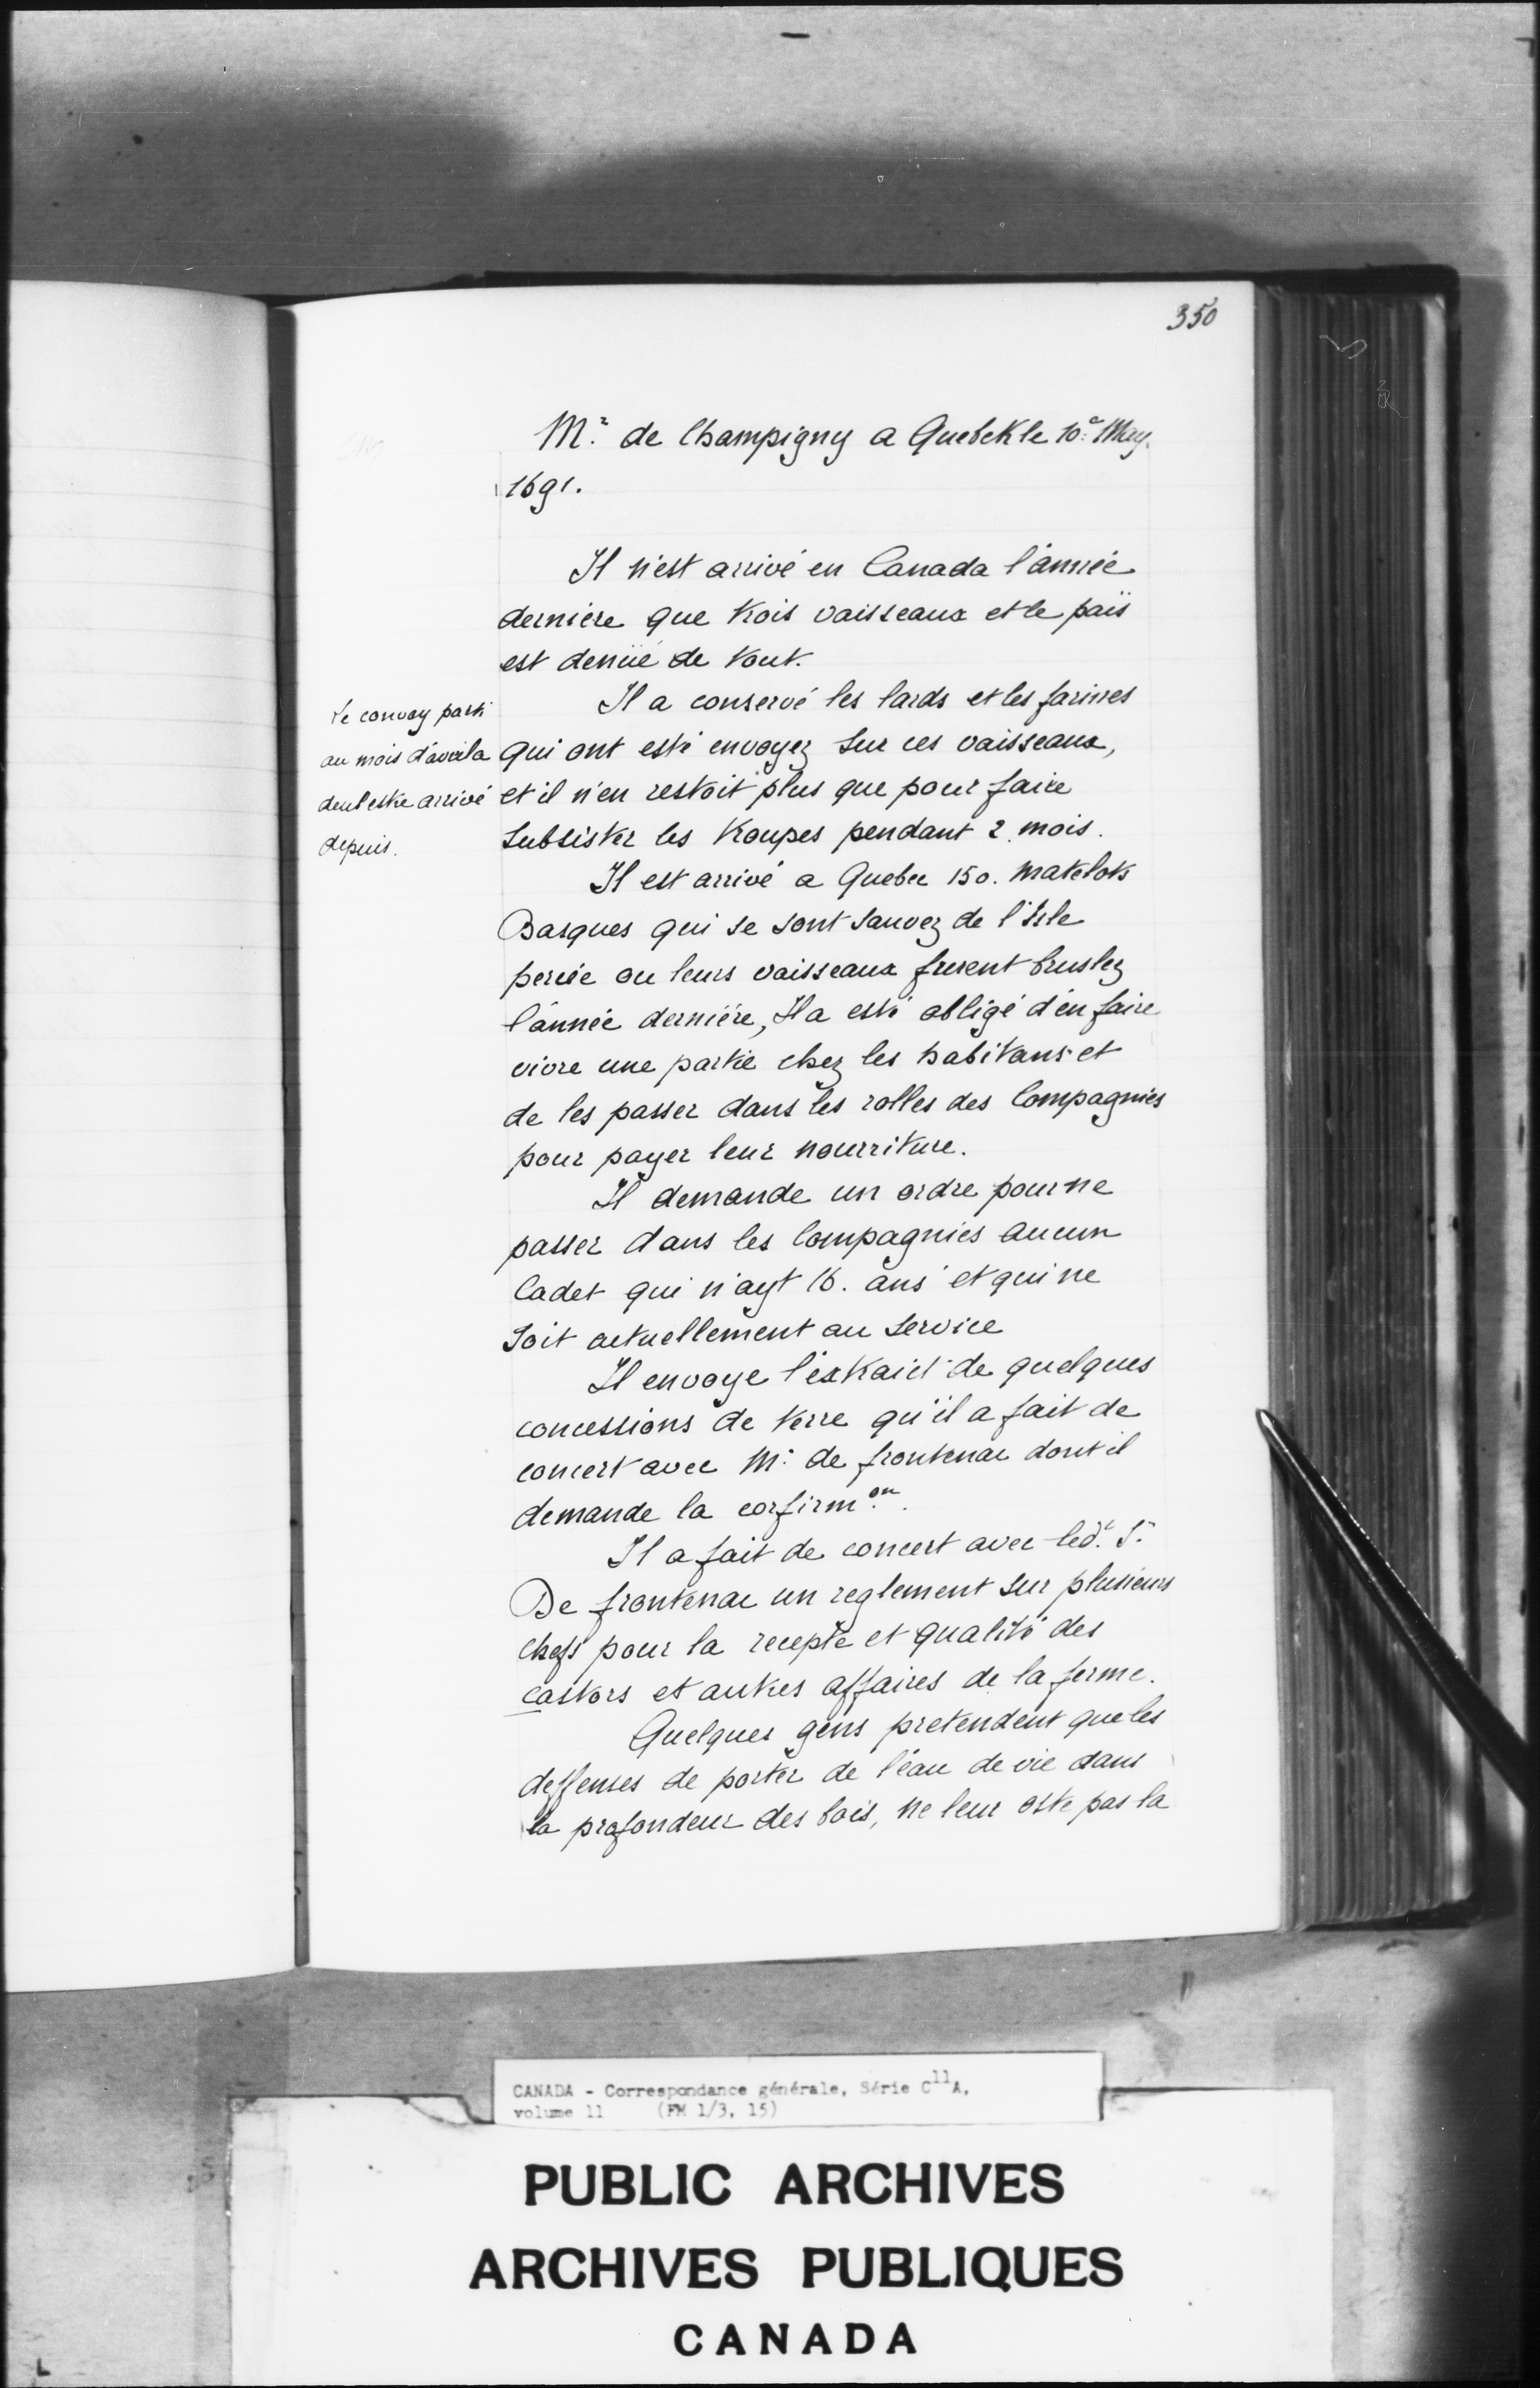 350
M.r de Champigny a Quebek le 10.e May.
1691.
Il n'est arrivé en Canada l'année
derniere que trois vaisseaux et le païs
est denüé de tout.
Il a conservé les lards et les farines
qui ont esté envoyez sur ces vaisseaux,
et il n'en restoit plus que pour faire
subsister les troupes pendant 2. mois.
Le convoy parti
au mois d'avril a
deub estre arrivé
depuis.
Il est arrivé a Quebec 150. matelots
Basques qui se sont sauvez de l'Isle
percée ou leurs vaisseaux furent bruslez
l'année derniére, Il a esté obligé d'en faire
vivre une partie chez les habitans et
de les passer dans les rolles des Compagnies
pour payer leur nourriture.
Il demande un ordre pour ne
passer dans les Compagnies aucun
Cadet qui n'ayt 16. ans et qui ne
soit actuellement au service
Il envoye l'extraict de quelques
concessions de terre qu'il a fait de
concert avec M.r de frontenac dont il
demande la confirm.on.
Il a fait de concert avec led.t S.r
De frontenac un reglement sur plusieurs
chefs pour la recepte et qualité des
castors et autres affaires de la ferme.
Quelques gens pretendent que les
deffenses de porter de l'eau de vie dans
la profondeur des bois, ne leur oste pas la
CANADA - Correspondance générale, Série C11A,
volume 11 (FM 1/3, 15)
PUBLIC ARCHIVES
ARCHIVES PUBLIQUES
CANADA